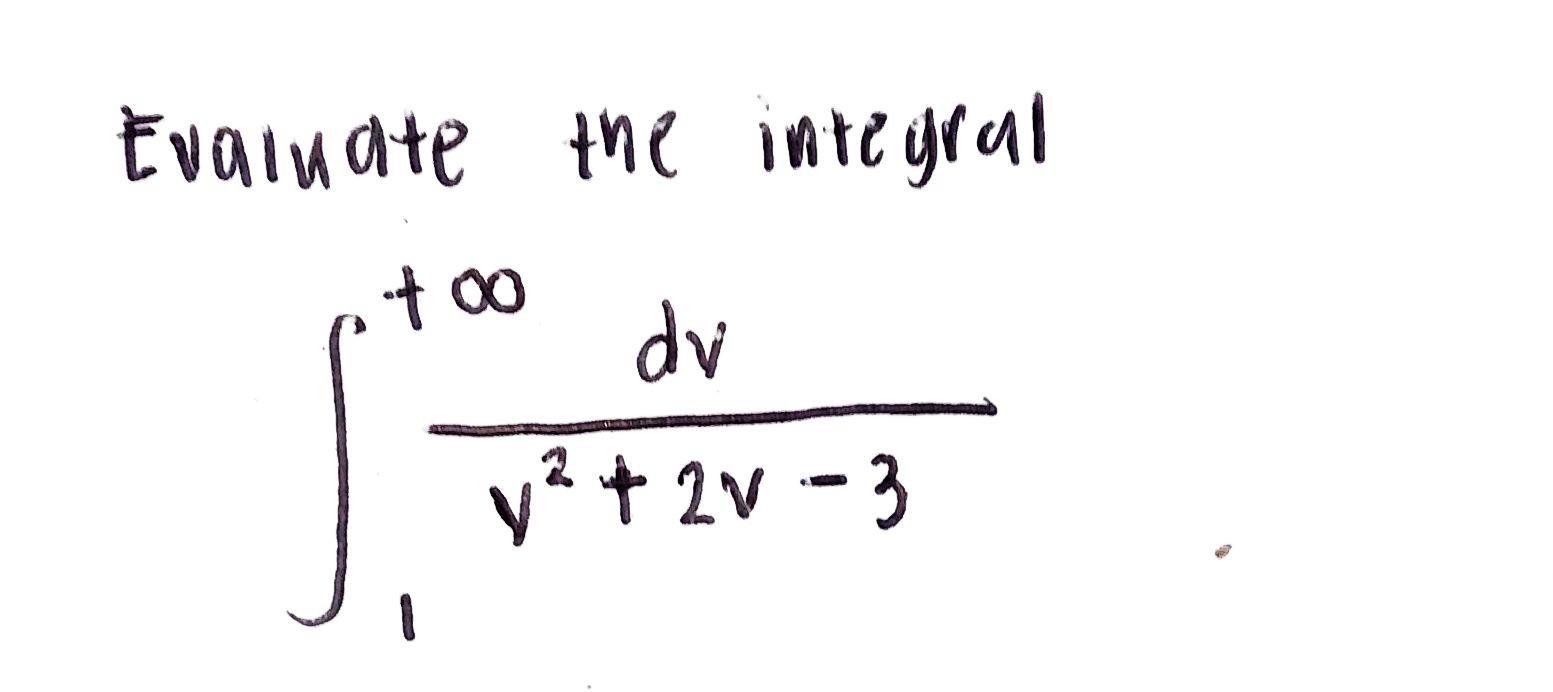 Evaluate the integral
∫₁^{+∞} dv / (v² + 2v - 3)